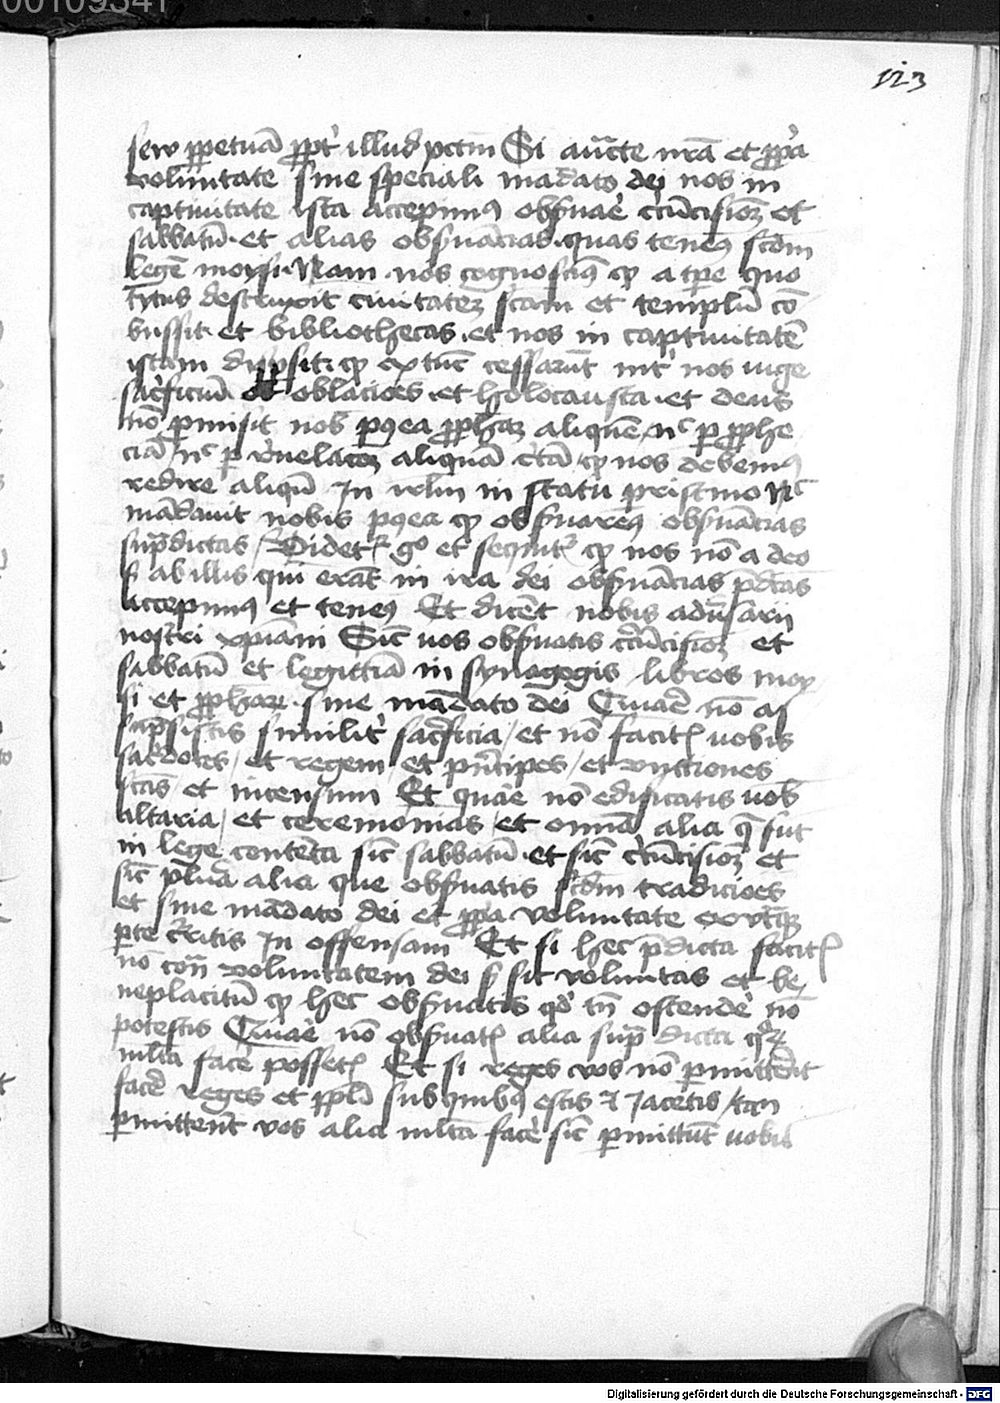 00109341
123
seu ꝑpetuā ꝓpt' illud pctm̄ Si aūcte nrā et ꝓp'a
voluntate sine speciali mādato dei nos in
captiuitate ista accepimꝰ obsuaē c'cūcisioꝫ et
sabbatū et alias obsuācias quas tenemꝰ scdm
legē moysi Nam nos cognoscimꝰ ꝙ a tꝑe quo
tytus destruxit ciuitateꝫ scām et templū cō
bussit et bibliothecas et nos in captiuitatē
istam dispsit ꝙ ex tūc cessarūt int' nos iuge
sac'ficiū et oblacioēs et holocausta et deus
nō ꝓmisit nob' pꝰea ꝓphetaꝫ aliquē nᶜ ꝑ ꝓphe
ciā nᶜ ꝑ reuelacōꝫ aliquā c'tā ꝙ nos debemꝰ
redire aliqn̄ In irlm in statū pristinū Nᶜ
mādauit nobis pꝰea ꝙ obsuaremꝰ obsuācias
sup̄dictas Videt' gͦ et sequit' ꝙ nos nō a deo
ß ab illis qui erāt in ira dei obsuācias p̄dc̄as
accepimꝰ et tenemꝰ Et dicēt nobis adūsarij
nostri xpiani Sic vos obsuatis c'cūcisioꝫ et
sabbatū et legittiā in synagogis libros moy
si et ꝓphaꝝ sine mādato dei Quaē nō as
sūpsistis similit' sac'ficia et nō facit' vobis
sac'dotes et regem et p'ncipes et vnctiones
scās et incensum Et quaē nō edificatis vob'
altaria et ceremonias et omīa alia q̄ sūt
in lege contenta sic sabbatū et sic c'cūcisioꝫ et
sic pl'ima alia que obsuatis scdm tradicioēs
et sine mādato dei et ꝓp'a voluntate ex vtraqꝫ
ꝑte eritis In offensam Et si hec p̄dicta facit'
nō cont' voluntatem dei ß sit voluntas et be
neplacitū ꝙ hec obsuatis qd' tn̄ ostendē nō
potestis Quaē nō obsuat' alia sup̄ dicta
mlta facē posset' Et si reges vos nō ꝑmittent
facē reges et ꝓpli sub quibꝰ estis et iacetis
ꝑmittent vos alia mlta facē sic ꝑmittūt vobis
Digitalisierung gefördert durch die Deutsche Forschungsgemeinschaft - DFG